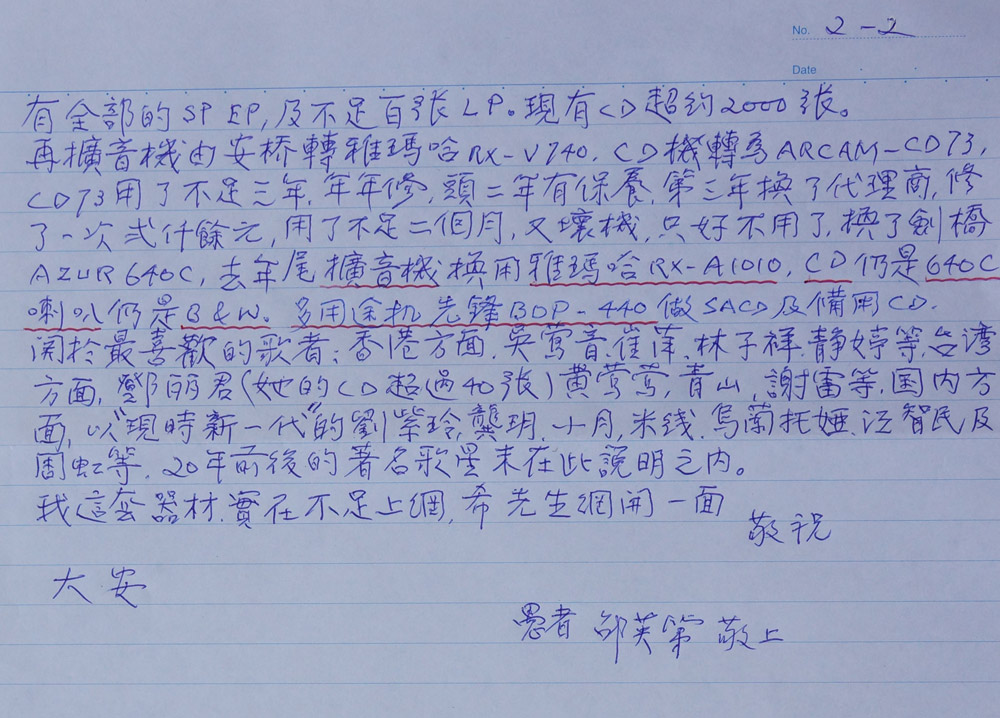 No. 2-2
Date
有全部的SP EP,及不足百張LP。現有CD超約2000張。
再擴音機由安桥轉雅瑪哈RX-V740, CD機轉為ARCAM-CD73,
CD73用了不足三年,年年修,頭二年有保養,第三年換了代理商,修
了一次弍仟餘元,用了不足二個月,又壞機,只好不用了,換了劍橋
AZUR 640C,去年尾擴音機換用雅瑪哈RX-A1010, CD仍是640C
喇叭仍是B&W。多用途机先鋒BDP-440做SACD及備用CD.
関於最喜歡的歌者:香港方面,吳莺音,崔萍,林子祥,静婷等,台湾
方面,鄧丽君(她的CD超過40張)黄莺莺,青山,謝雷等,国内方
面,以"現時新一代"的劉紫玲,龔玥,十月,米线,烏蘭托婭,汪智民及
周虹等,20年前後的著名歌星未在此説明之内。
我這套器材,實在不足上網,希先生網開一面
敬祝
大安
愚者 邰英第 敬上